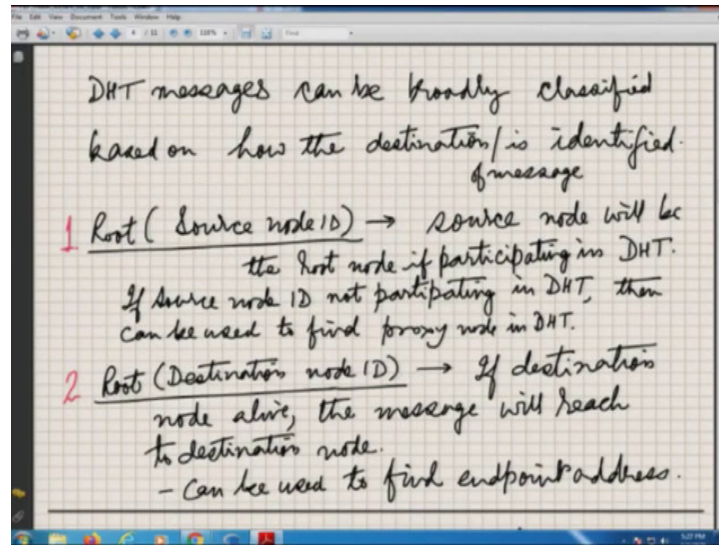 File Edit View Document Tools Window Help
4 / 11 118% Find
DHT messages can be broadly classified
based on how the destination/is identified.
of message
1 Root (Source node ID) → source node will be
the Root node if participating in DHT.
If source node ID not partipating in DHT, then
can be used to find proxy node in DHT.
2 Root (Destination node ID) → If destination
node alive, the message will reach
to destination node.
- can be used to find endpoint address.
5:27 PM